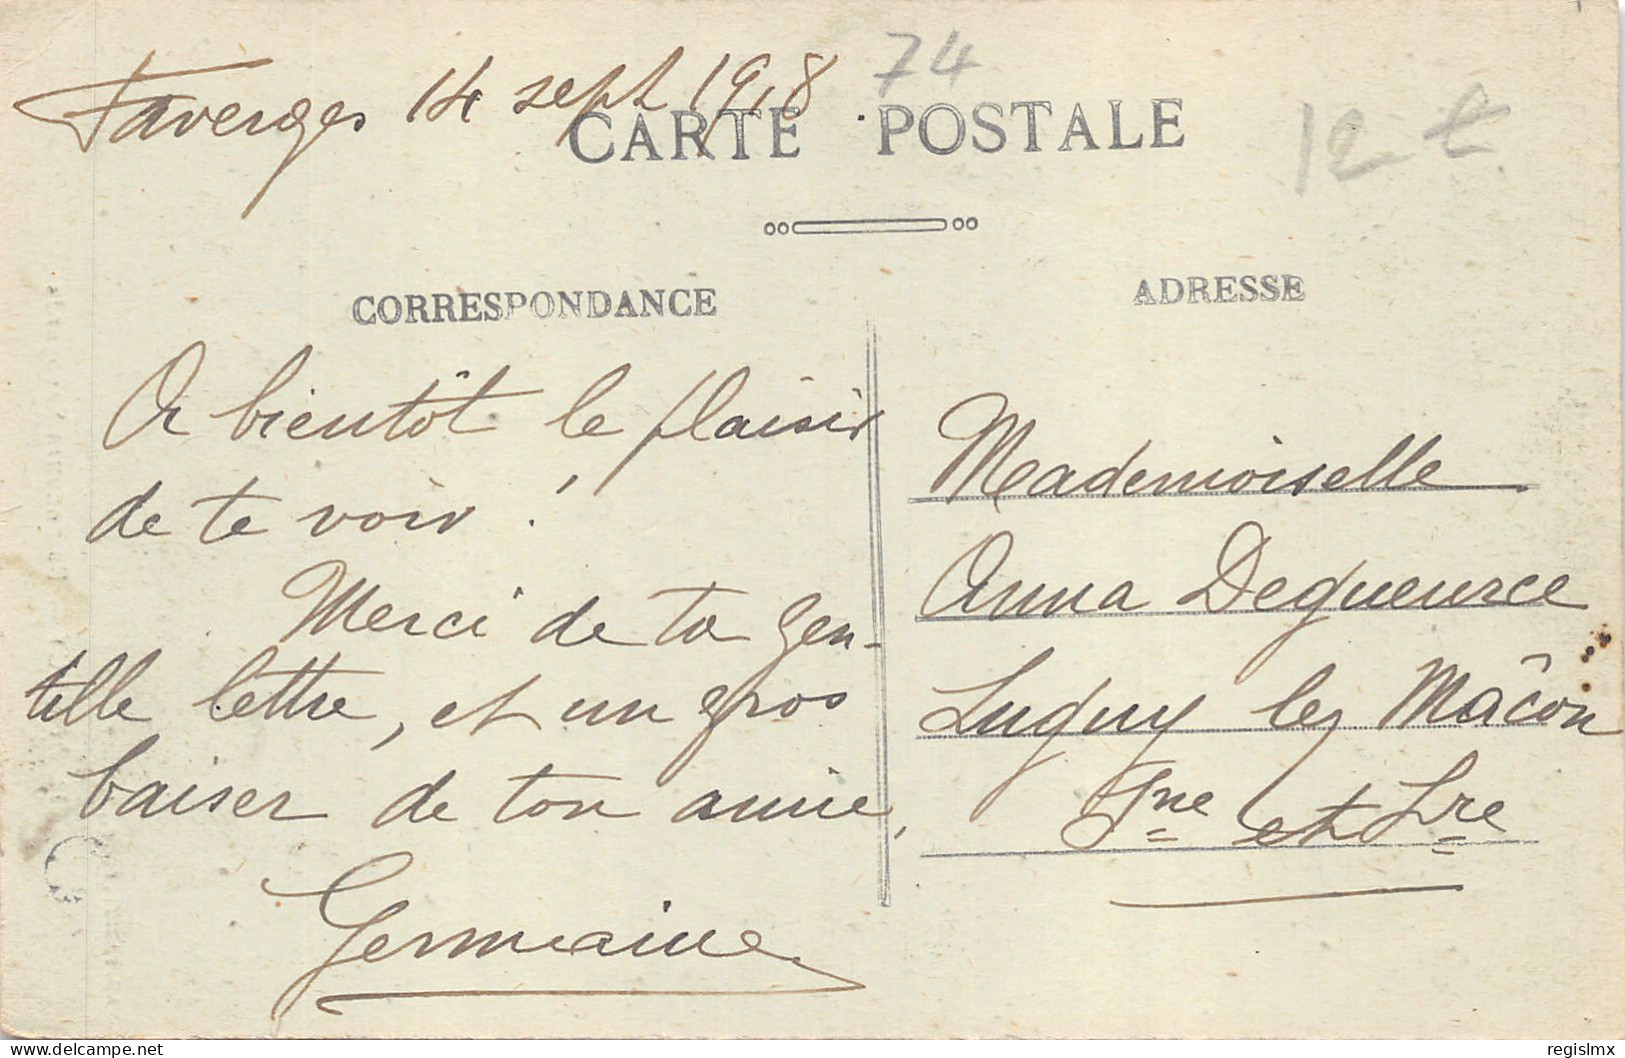 Faverges 14 sept 1918
74
CARTE POSTALE
12 €
CORRESPONDANCE
ADRESSE
A bientôt le plaisir
de te voir !
Merci de ta gen-
tille lettre, et un gros
baiser de ton amie,
Germaine
Mademoiselle
Anna Degueurce
Lugny les Mâcon
Sne et Lre
delcampe.net
regislmx